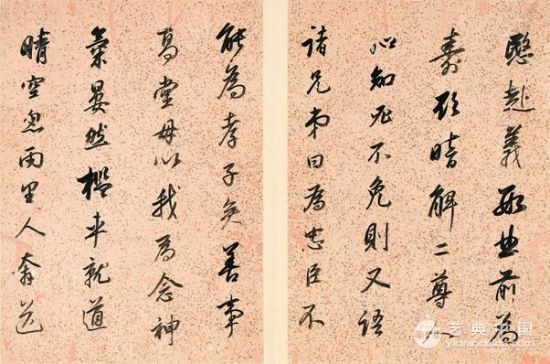 赴義 前為
壽 暗解二尊
心知死不免則又語
諸兄弟曰為忠臣不
能為孝子矣善事
高堂毋以我為念神
氣晏然檻車就道
晴空忽雨里人奔送
艺典中国
yidianchina.com